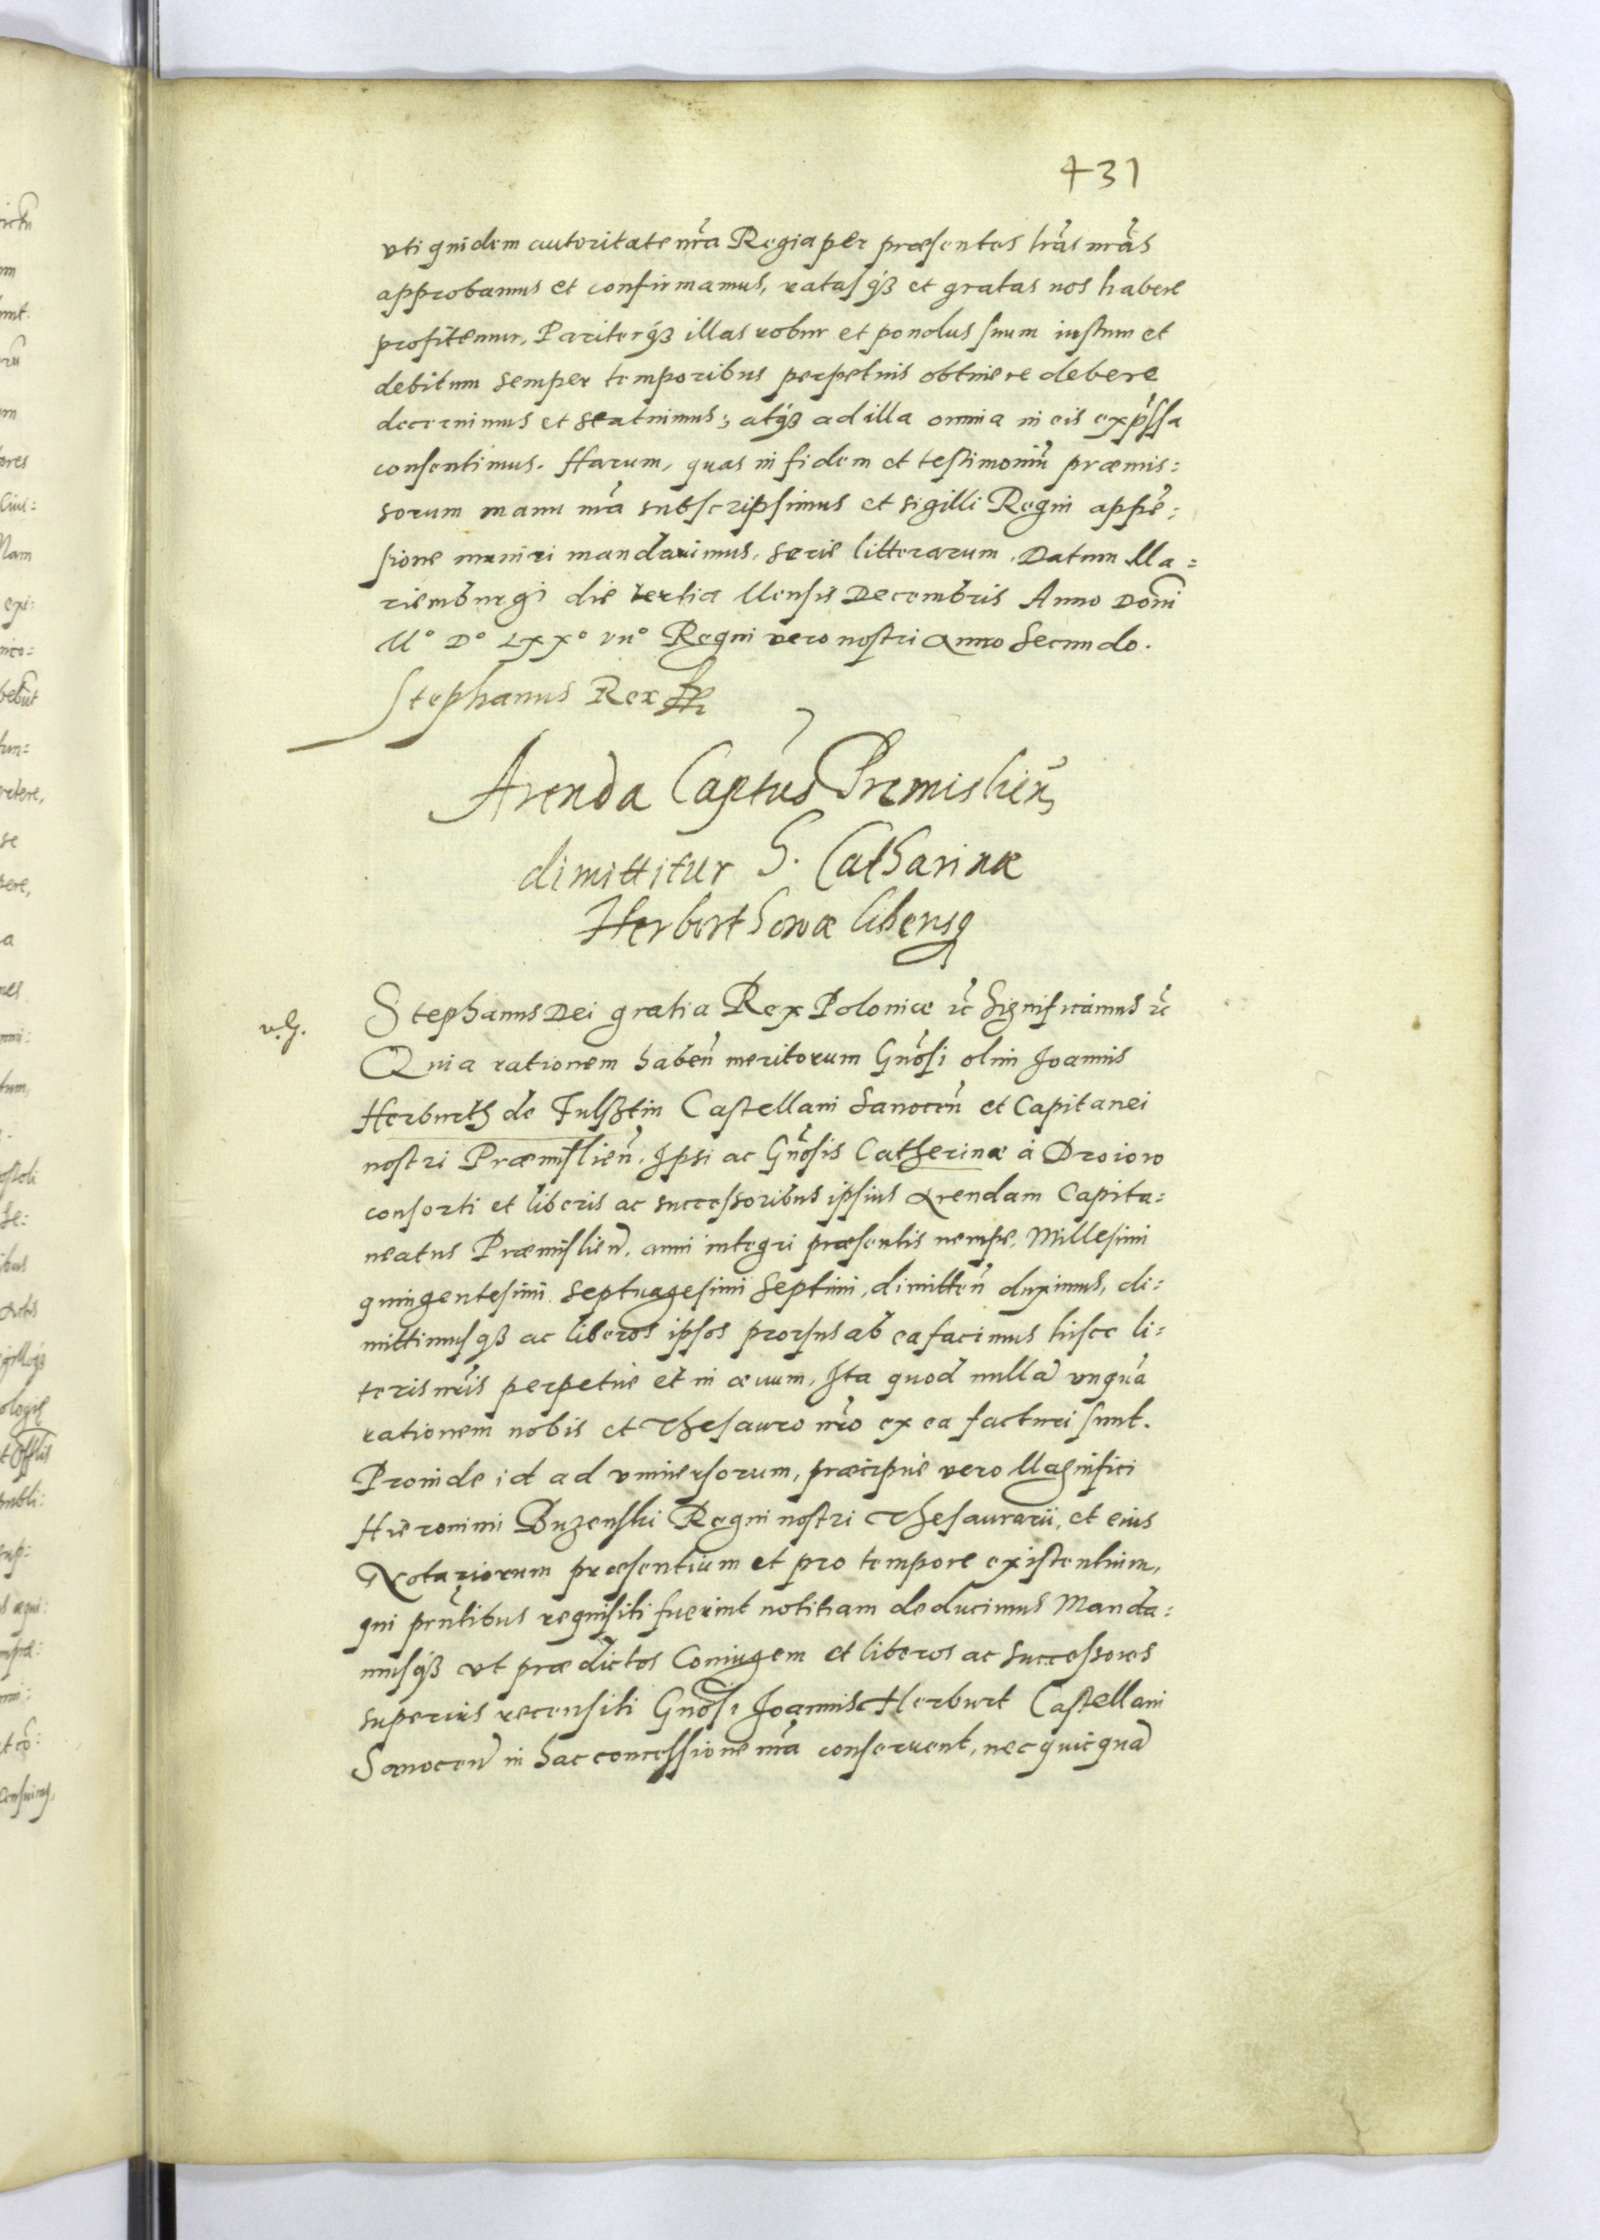 431
vti quidem autoritate nr̃a Regia per præsentes lr̃as nr̃as
approbamus et confirmamus, ratasqꝫ et gratas nos habere
profitemur, Pariterqꝫ illas robur et pondus suum iustum et
debitum semper temporibus perpetuis obtinere debere
decernimus et statuimus, atqꝫ ad illa omnia in eis exp̃ssa
consentimus. Harum, quas in fidem et testimoniũ præmis:
sorum manu nr̃a subscripsimus et sigilli Regni appẽ:
sione muniri mandauimus, serie litterarum. Datum Ma=
riemburgi die tertia Mensis Decembris Anno Domĩ
M° D° LXX° vii° Regni vero nostri Anno Secundo.
Stephanus Rex
Arenda Captus Premislień
dimittitur G. Catharinæ
Herborthowæ liberisq
v.G.
Stephanus Dei gratia Rex Poloniæ ꝛc̃ Significamus ꝛc̃
Quia rationem habeñ meritorum Gñosi olim Joannis
Herburth de Fulsztin Castellani Sanoceñ et Capitanei
nostri Præmislieñ. Ipsi ac Gñosis Catherinæ à Droiow
consorti et liberis ac successoribus ipsius Arendam Capita:
neatus Præmislieñ. anni integri præsentis nempe, Millesimi
quingentesimi Septuagesimi Septimi, dimitteñ duximus, di:
mittimusqꝫ ac liberos ipsos prorsus ab ea facimus hisce li:
teris nr̃is perpetue et in æuum, Ita quod nullã vnquã
rationem nobis et Thesauro nr̃o ex ea facturi sunt.
Proinde id ad vniuersorum, præcipue vero Magnifici
Hieronimi Buzenski Regni nostri Thesaurarii, et eius
Notariorum præsentium et pro tempore existentium,
qui pñtibus requisiti fuerint notitiam deducimus Manda:
musqꝫ vt prædictos Coniugem et liberos ac successores
superius recensiti Gñosi Joannis Herburt Castellani
Sanoceñ in hac concessione nr̃a conseruent, nec quicquã